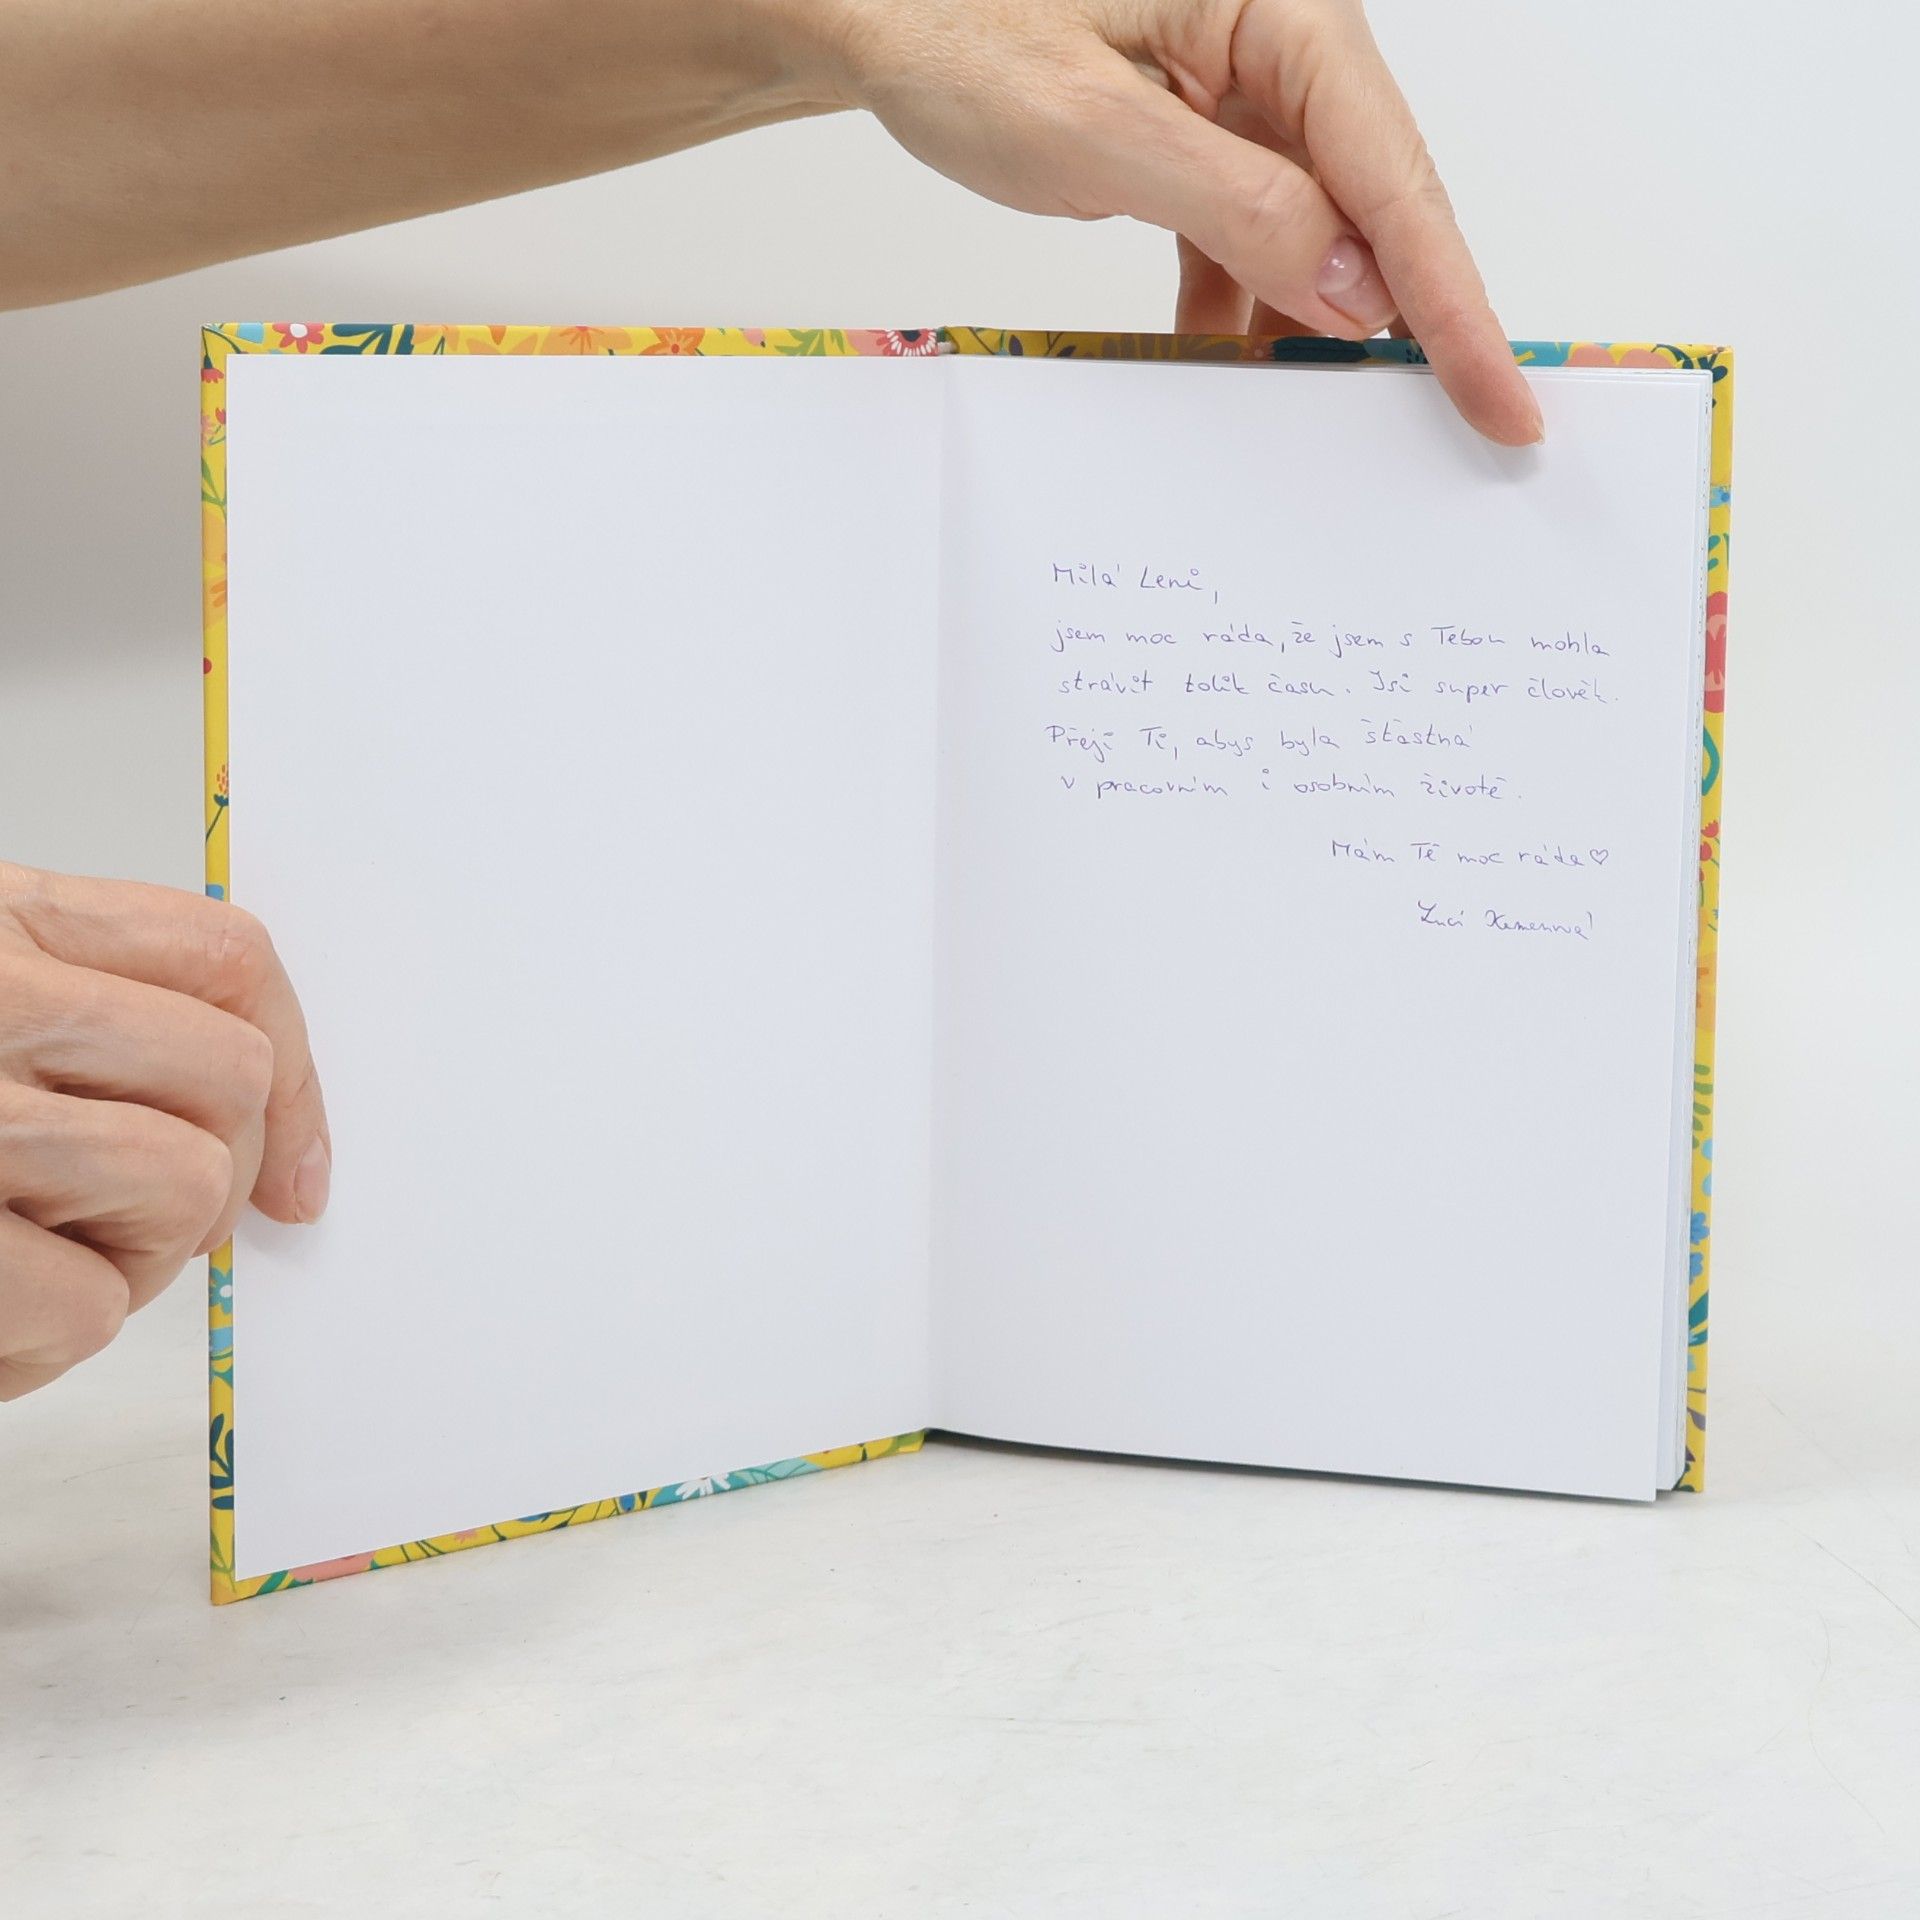 Milá Leni,
jsem moc ráda, že jsem s Tebou mohla
strávit tolik času. Jsi super člověk.
Přeji Ti, abys byla šťastná
v pracovním i osobním životě.
Mám Tě moc ráda♡
Luci